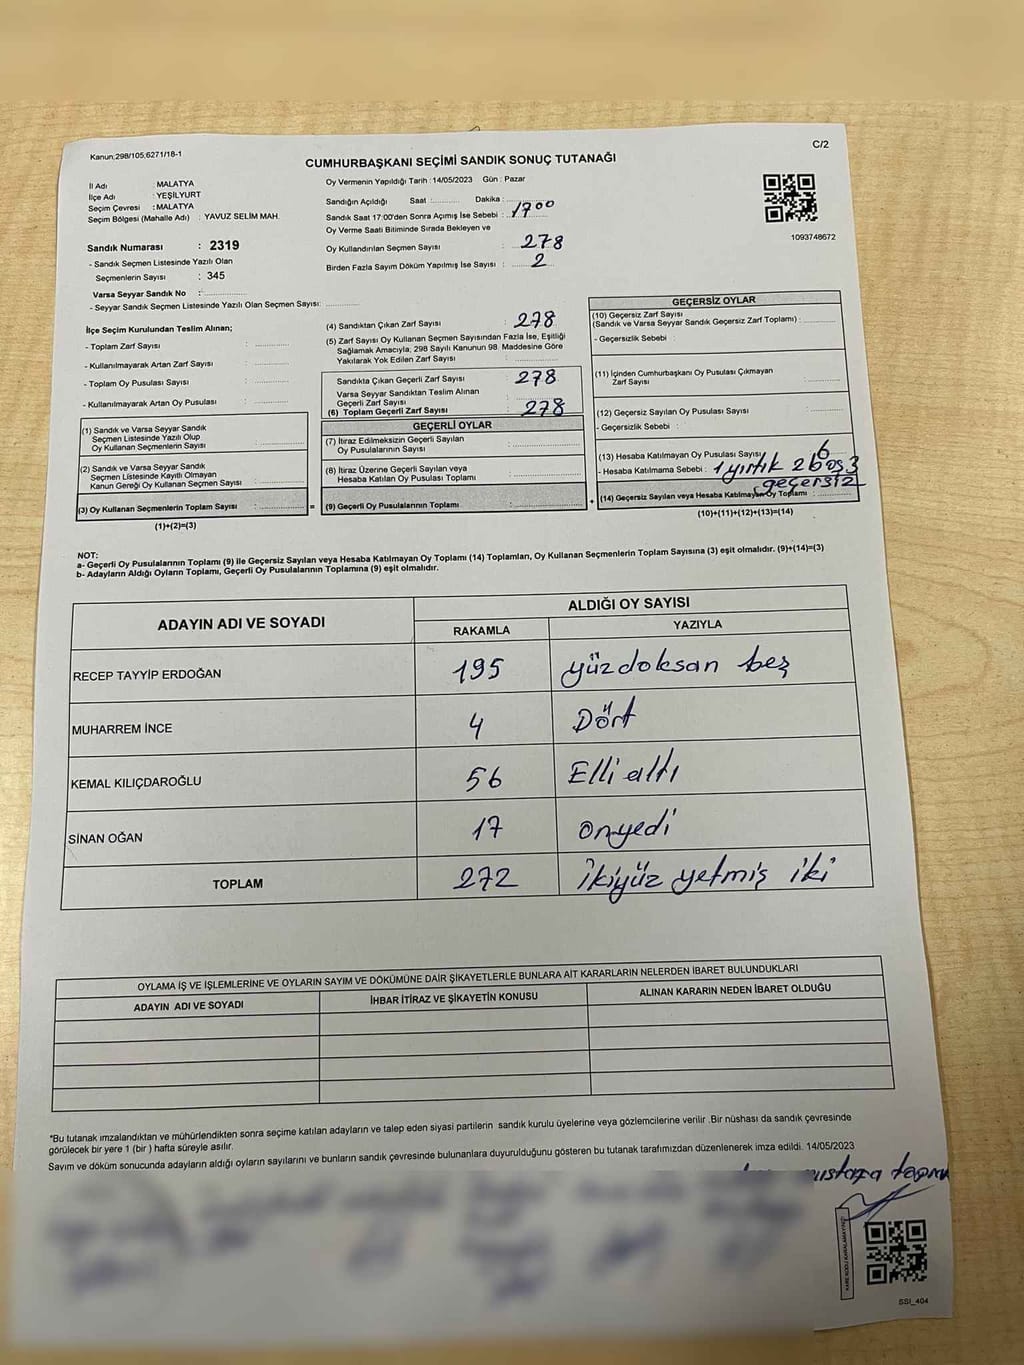 Kanun;298/105;6271/18-1
C/2
CUMHURBAŞKANI SEÇİMİ SANDIK SONUÇ TUTANAĞI
İl Adı : MALATYA
İlçe Adı : YEŞİLYURT
Seçim Çevresi : MALATYA
Seçim Bölgesi (Mahalle Adı) : YAVUZ SELİM MAH.
Oy Vermenin Yapıldığı Tarih :14/05/2023 Gün : Pazar
Sandığın Açıldığı Saat :............ Dakika :............
Sandık Saat 17:00'den Sonra Açımış İse Sebebi : 17 00
Oy Verme Saati Bitiminde Sırada Bekleyen ve
Oy Kullandırılan Seçmen Sayısı : 278
Birden Fazla Sayım Döküm Yapılmış İse Sayısı : 2
1093748672
Sandık Numarası : 2319
- Sandık Seçmen Listesinde Yazılı Olan
Seçmenlerin Sayısı : 345
Varsa Seyyar Sandık No :............
- Seyyar Sandık Seçmen Listesinde Yazılı Olan Seçmen Sayısı: ............
İlçe Seçim Kurulundan Teslim Alınan;
- Toplam Zarf Sayısı : ............
- Kullanılmayarak Artan Zarf Sayısı : ............
- Toplam Oy Pusulası Sayısı : ............
- Kullanılmayarak Artan Oy Pusulası : ............
(1) Sandık ve Varsa Seyyar Sandık
Seçmen Listesinde Yazılı Olup
Oy Kullanan Seçmenlerin Sayısı : ............
(2) Sandık ve Varsa Seyyar Sandık
Seçmen Listesinde Kayıtlı Olmayan
Kanun Gereği Oy Kullanan Seçmen Sayısı : ............
(3) Oy Kullanan Seçmenlerin Toplam Sayısı : ............
(1)+(2)=(3)
=
(4) Sandıktan Çıkan Zarf Sayısı : 278
(5) Zarf Sayısı Oy Kullanan Seçmen Sayısından Fazla İse, Eşitliği
Sağlamak Amacıyla; 298 Sayılı Kanunun 98. Maddesine Göre
Yakılarak Yok Edilen Zarf Sayısı : ............
Sandıkta Çıkan Geçerli Zarf Sayısı : 278
Varsa Seyyar Sandıktan Teslim Alınan
Geçerli Zarf Sayısı : ............
(6) Toplam Geçerli Zarf Sayısı : 278
GEÇERLİ OYLAR
(7) İtiraz Edilmeksizin Geçerli Sayılan
Oy Pusulalarının Sayısı : ............
(8) İtiraz Üzerine Geçerli Sayılan veya
Hesaba Katılan Oy Pusulası Toplamı : ............
(9) Geçerli Oy Pusulalarının Toplamı : ............
+
GEÇERSİZ OYLAR
(10) Geçersiz Zarf Sayısı
(Sandık ve Varsa Seyyar Sandık Geçersiz Zarf Toplamı) : ............
- Geçersizlik Sebebi :
(11) İçinden Cumhurbaşkanı Oy Pusulası Çıkmayan
Zarf Sayısı : ............
(12) Geçersiz Sayılan Oy Pusulası Sayısı : ............
- Geçersizlik Sebebi :
(13) Hesaba Katılmayan Oy Pusulası Sayısı : 6
- Hesaba Katılmama Sebebi : 1 yırtık 2 boş 3
geçersiz
(14) Geçersiz Sayılan veya Hesaba Katılmayan Oy Toplamı : ............
(10)+(11)+(12)+(13)=(14)
NOT:
a- Geçerli Oy Pusulalarının Toplamı (9) ile Geçersiz Sayılan veya Hesaba Katılmayan Oy Toplamı (14) Toplamları, Oy Kullanan Seçmenlerin Toplam Sayısına (3) eşit olmalıdır. (9)+(14)=(3)
b- Adayların Aldığı Oyların Toplamı, Geçerli Oy Pusulalarının Toplamına (9) eşit olmalıdır.
ADAYIN ADI VE SOYADI
ALDIĞI OY SAYISI
RAKAMLA YAZIYLA
RECEP TAYYİP ERDOĞAN 195 yüzdoksan beş
MUHARREM İNCE 4 Dört
KEMAL KILIÇDAROĞLU 56 Elli altı
SİNAN OĞAN 17 onyedi
TOPLAM 272 İkiyüz yetmiş iki
OYLAMA İŞ VE İŞLEMLERİNE VE OYLARIN SAYIM VE DÖKÜMÜNE DAİR ŞİKAYETLERLE BUNLARA AİT KARARLARIN NELERDEN İBARET BULUNDUKLARI
ADAYIN ADI VE SOYADI İHBAR İTİRAZ VE ŞİKAYETİN KONUSU ALINAN KARARIN NEDEN İBARET OLDUĞU
*Bu tutanak imzalandıktan ve mühürlendikten sonra seçime katılan adayların ve talep eden siyasi partilerin sandık kurulu üyelerine veya gözlemcilerine verilir .Bir nüshası da sandık çevresinde
görülecek bir yere 1 (bir ) hafta süreyle asılır.
Sayım ve döküm sonucunda adayların aldığı oyların sayılarını ve bunların sandık çevresinde bulunanlara duyurulduğunu gösteren bu tutanak tarafımızdan düzenlenerek imza edildi. 14/05/2023
SSI_404